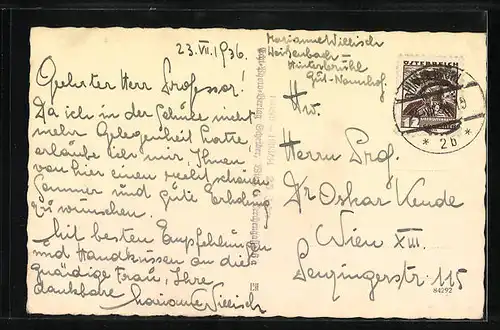 23.VII.1936.
Geehrter Herr Professor!
Da ich in der Schule nicht
mehr Gelegenheit hatte,
erlaube ich mir, Ihnen
von hier einen recht schönen
Sommer und gute Erholung
zu wünschen.
Mit besten Empfehlungen
und Handküssen an die
gnädige Frau, Ihre
dankbare Marianne Willisch
Marianne Willisch
Weißenbach–
Hinterbrühl
Gut-
ÖSTERREICH
12
* 2b *
Hw.
Herrn Prof.
Dr Oskar Kende
Wien XIII.
Penzingerstr. 115
84292